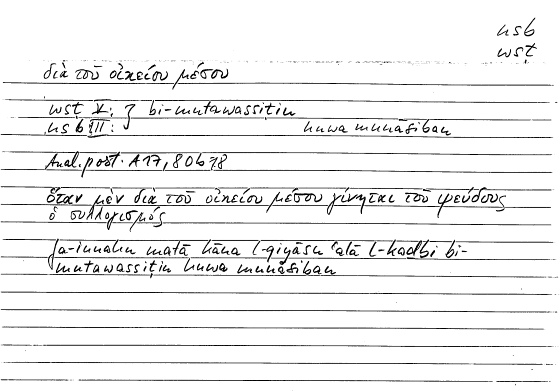 nsb
wsṭ
διὰ τοῦ οἰκείου μέσου
wsṭ V: } bi-mutawassiṭin
nsb III: huwa munāsiban
Anal. post. A 17, 80b78
ὅταν μὲν διὰ τοῦ οἰκείου μέσου γίνηται τοῦ ψεύδους
ὁ συλλογισμός
fa-innahu matā kāna l-qiyāsu ʿalā l-kaḏbi bi-
mutawassiṭin huwa munāsiban